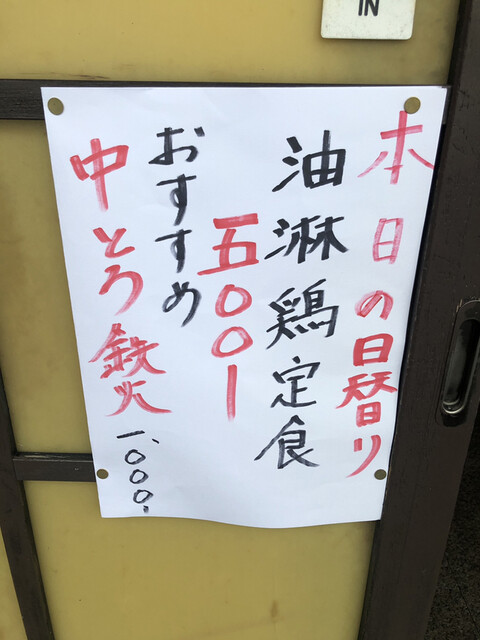 IN
本日の日替り
油淋鶏定食
五〇〇ー
おすすめ
中とろ鉄火
一、〇〇〇、